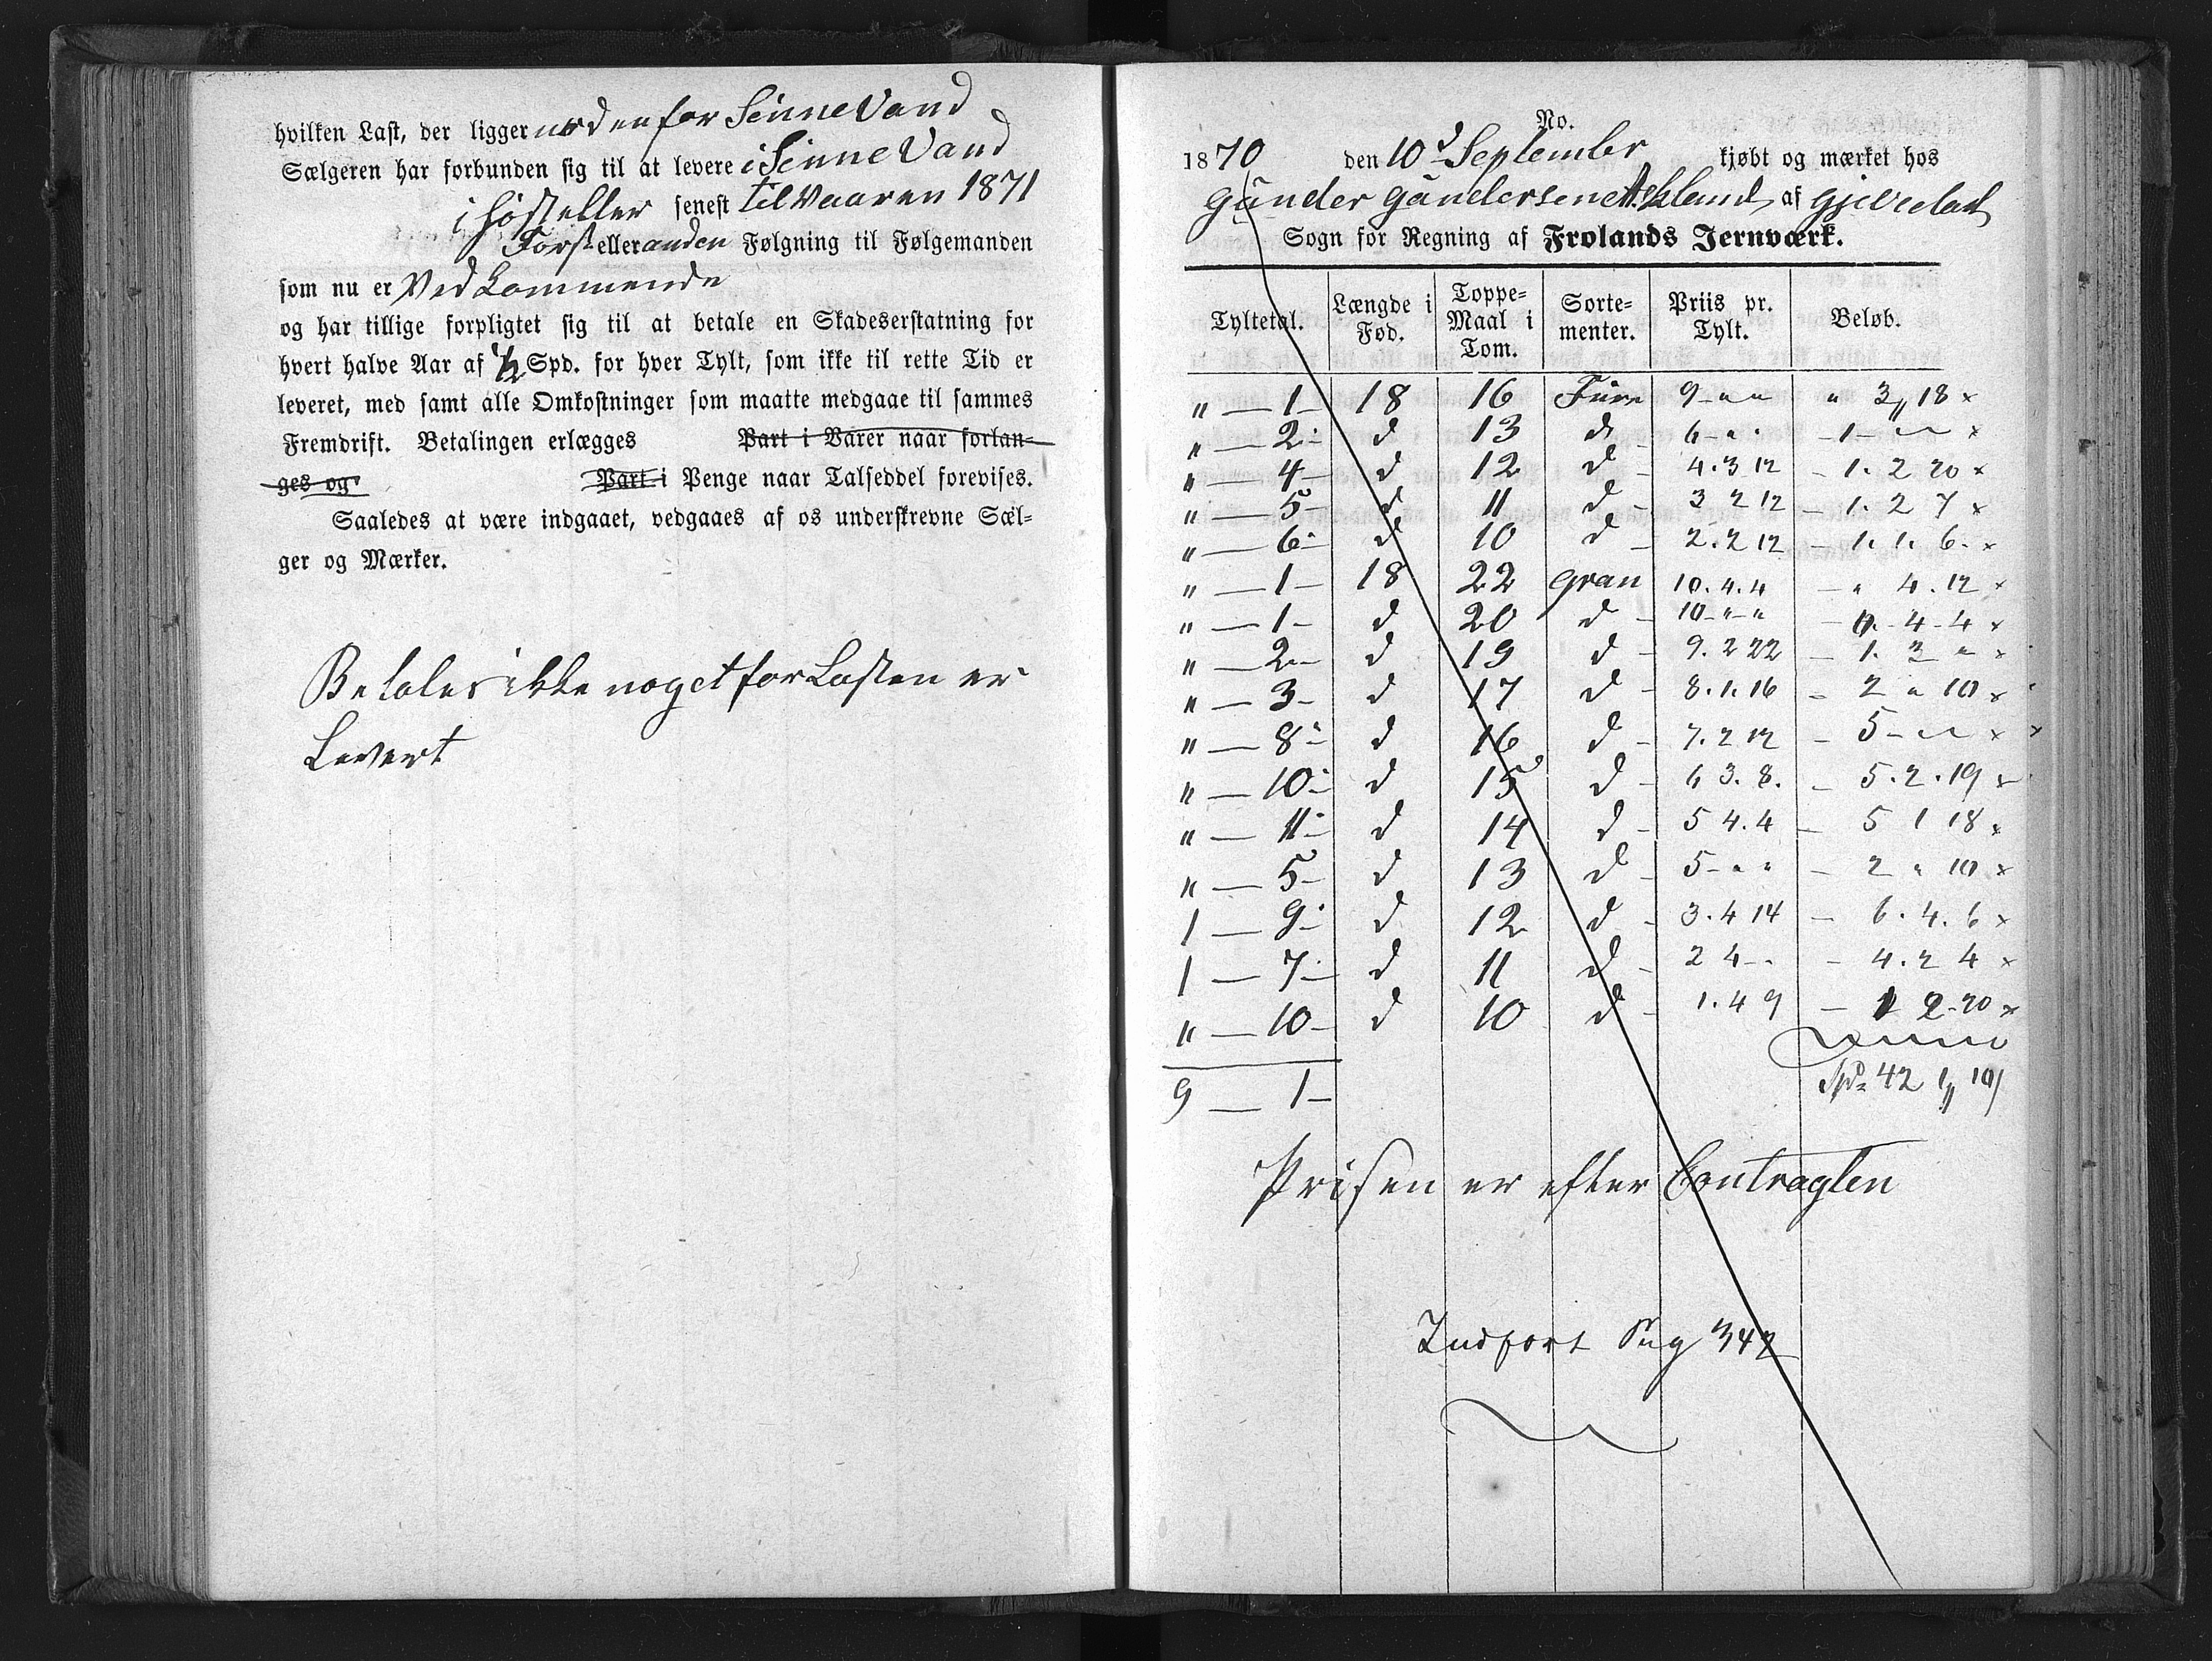 hvilken Last, der ligger nordenfor Sinne Vand
Sælgeren har forbunden sig til at levere i Sinne Vand
i Høst eller senest til Vaaren 1871
Først eller anden Følgning til Følgemanden
som nu er Ved Kommende
og har tillige forpligtet sig til at betale en Skadeserstatning for
hvert halve Aar af 1/2 Spd. for hver Tylt, som ikke til rette Tid er
leveret, med samt alle Omkostninger som maatte medgaae til sammes
Fremdrift. Betalingen erlægges Part i Varer naar forlan-
ges og Part i Penge naar Talseddel forevises.
Saaledes at være indgaaet, vedgaaes af os underskrevne Sæl-
ger og Mærker.
Betales ikke noget for Lasten er
Levert
No.
1870 den 10d September kjøbt og mærket hos
Gunder Gundersen Askland af Gjevedal
Sogn for Regning af Frolands Jernværk.
Tyltetal. Længde i Fød. Toppe-Maal i Tom. Sorte-menter. Priis pr. Tylt. Beløb.
" — 1 — 18 16 Furu 9 - " " " 3 " 18 x
" — 2 - d 13 d 6 - " - - 1 - " " x
" — 4 - d 12 d 4. 3 12 - 1. 2 20 x
" — 5 - d 11 d 3 2 12 - 1. 2 7 x
" — 6 - d 10 d 2. 2 12 - 1. 1. 6. x
" — 1 - 18 22 gran 10. 4. 4 - " 4. 12 x
" — 1 - d 20 d 10 - " - " - 0. - 4 - 4 x
" — 2 - d 19 d 9. 2 22 - 1. 3 " x
" — 3 - d 17 d 8. 1. 16 - 2 " 10 x
" — 8 - d 16 d 7. 2 12 - 5 - " " x
" — 10 - d 15 d 6 3. 8. - 5. 2. 19 x
" — 11 - d 14 d 5 4. 4 - 5 1 18 x
" — 5 - d 13 d 5 - " " - 2 " 10 x
1 — 9 - d 12 d 3. 4 14 - 6. 4. 6 x
1 — 7 - d 11 d 2 4 - - - 4. 2 4 x
" — 10 - d 10 d 1. 4 9 - 1 2 - 20 x
9 — 1 - Spd 42 1 " 10
Prisen er efter Contragten
Indført Pag 342